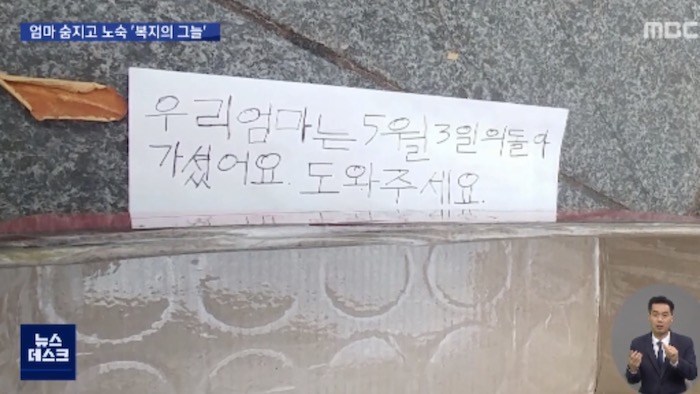 엄마 숨지고 노숙 '복지의 그늘'
MBC
우리엄마는 5월3일의돌아
가셨어요. 도와주세요.
뉴스
데스크